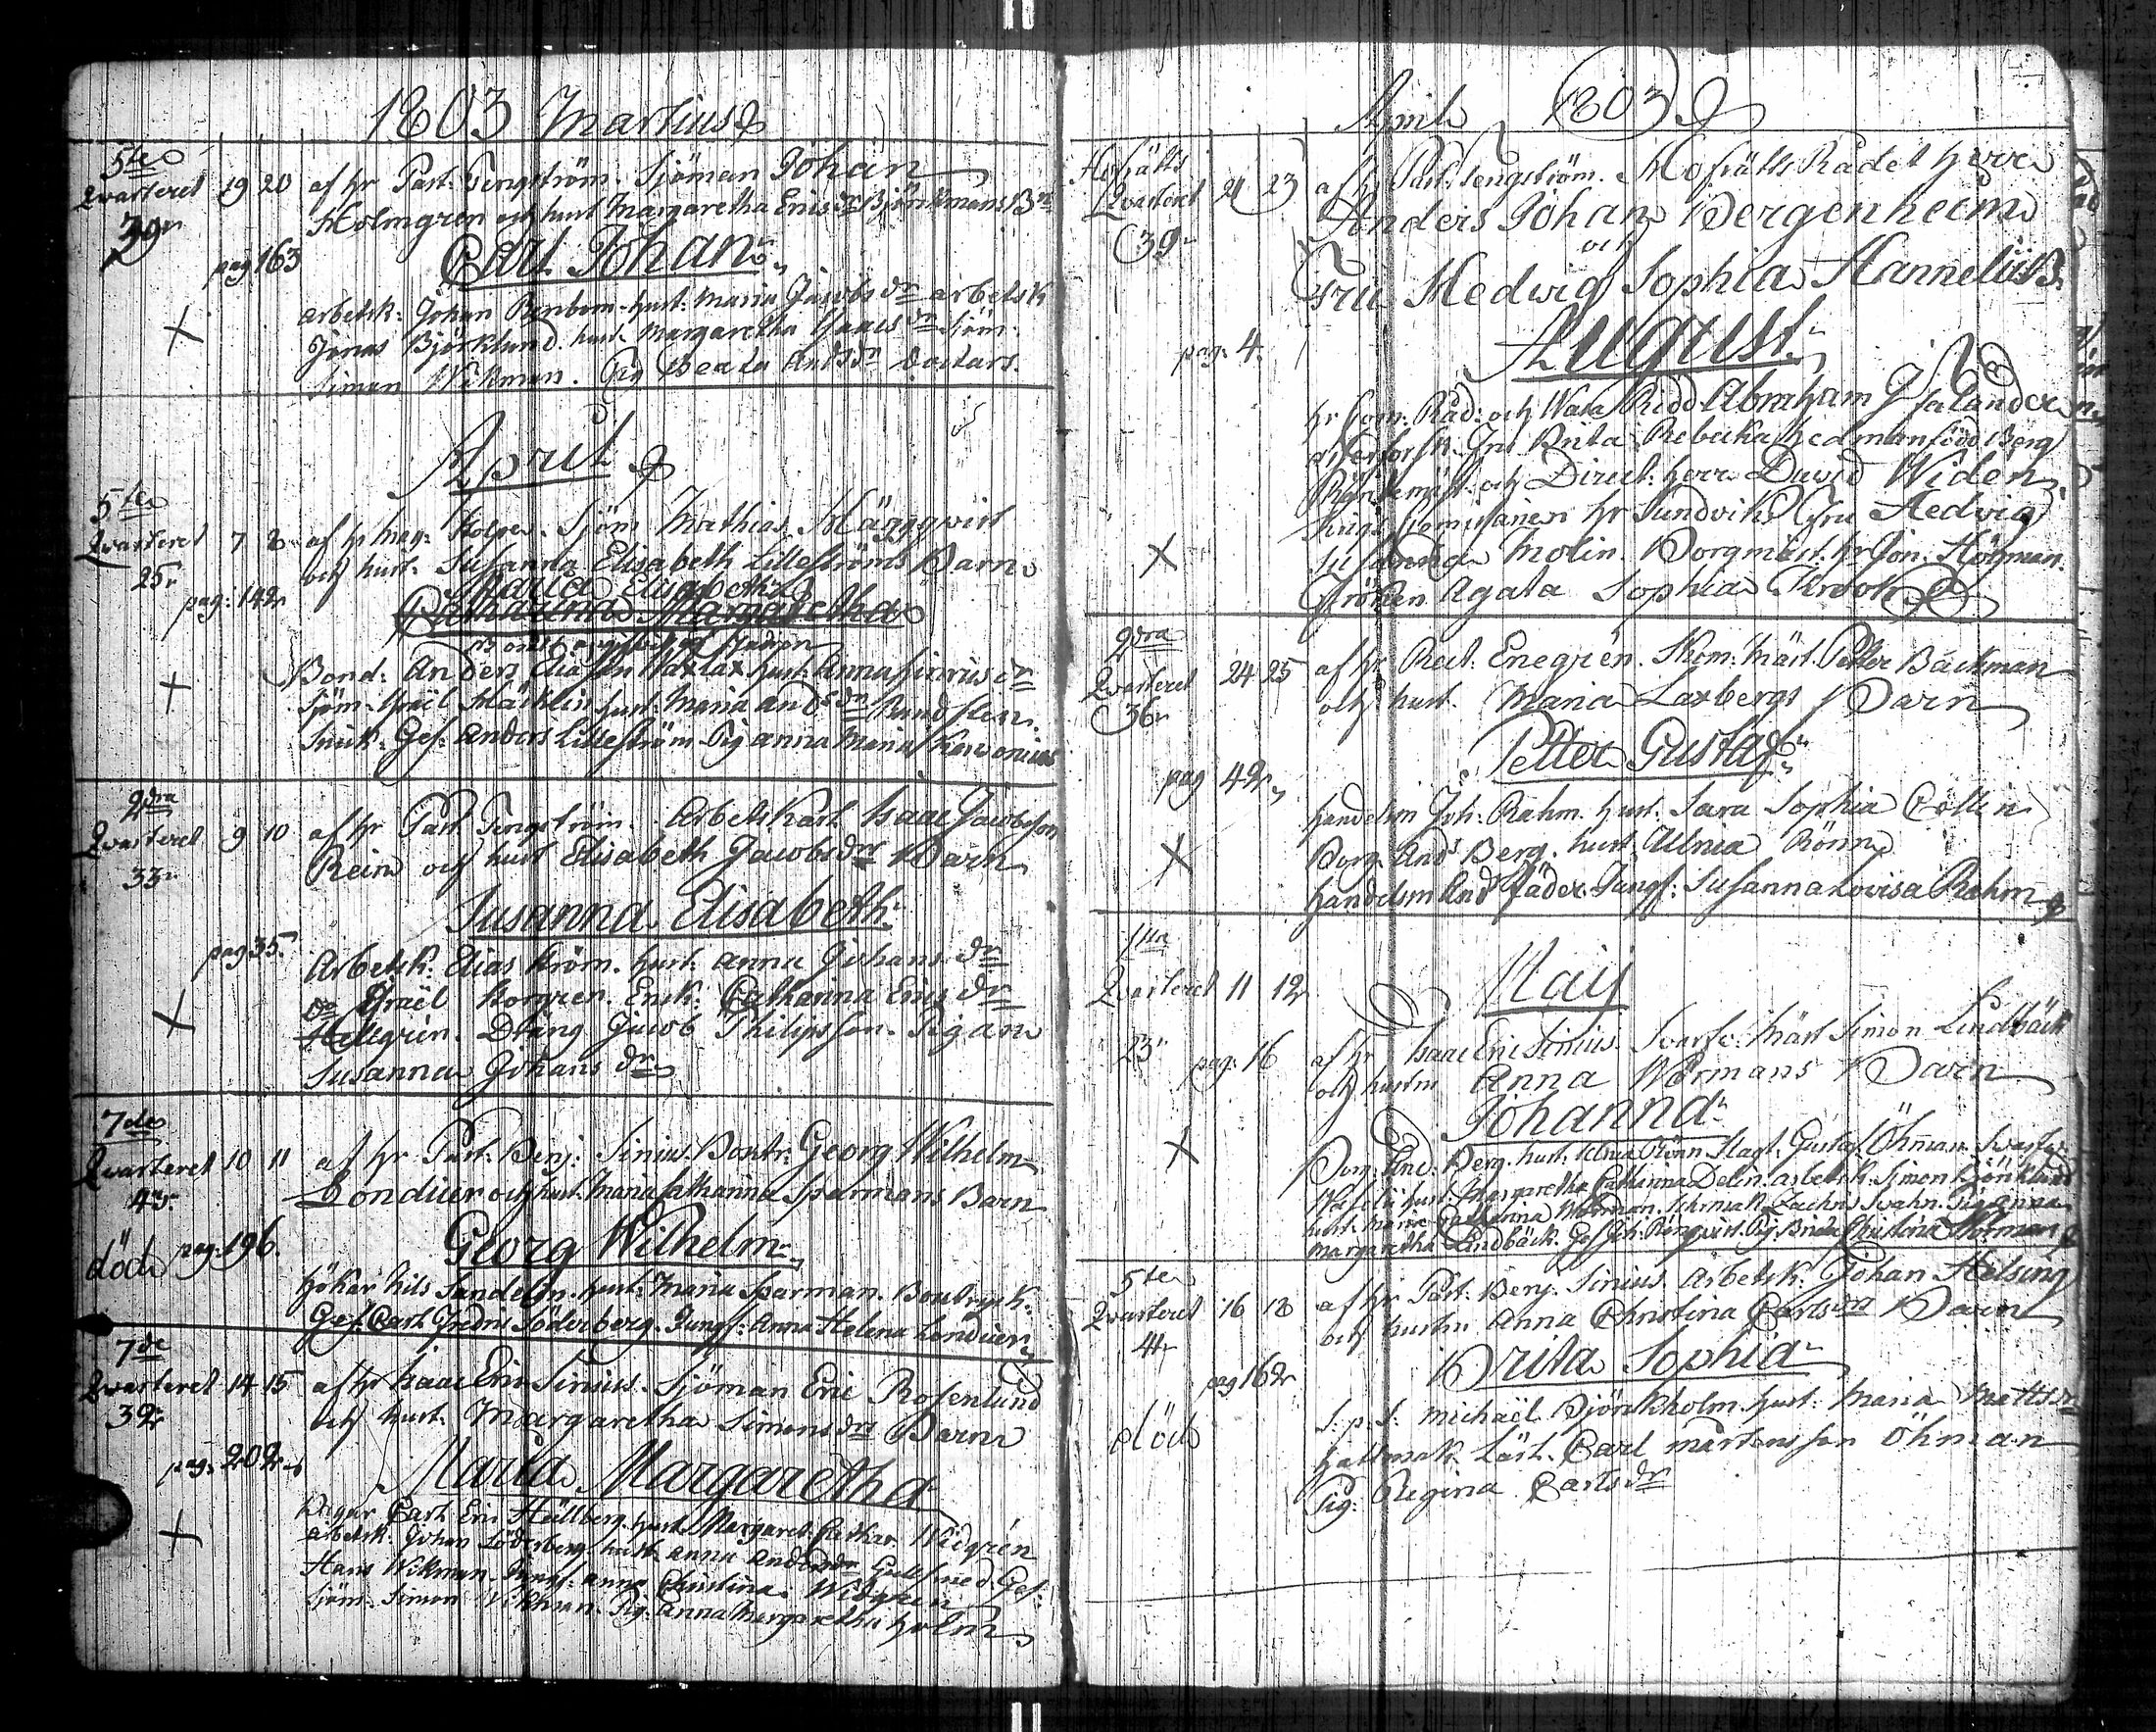 1803 Martius
5te
Qvarteret 19 20 af hr Past: Tengström. Sjöman Johan
39 Holmgren och hust Margaretha Ericsdr Björkmans Bn
pag 163 Carl Johan
arbetsk: Johan Renbom hust: Maria Jacobsdr arbetsk
Jonas Björklund hust: Margaretha Isacsdr Sjöm:
Simon Wikman. Pig Beata Andsdr
April
5te
Qvarteret 7 8 af hr Mag: Sjöm Mathias Häggqwist
25 och hust: Susanna Elisabeth Lilleströms Barn
pag: 142 Maria Elisabeth
Catharina Margaretha
Bond: Anders Eliasson hust: Anna
Sjöm: Israël hust: Maria Andsdr
Snick: Ges: Anders Lilleström Pig Anna Maria
2dra
Qvarteret 9 10 af hr Past. Tengström. Arbetskarl Isaac Jacobsson
33 Rein och hust Elisabeth Jacobsdrs Barn
Susanna Elisabeth
pag 35 Arbetsk: Elias Ström. hust: Anna Johansdr
do Israël Enk: Catharina Ericsdr
Hellgrén. Dräng Jacob Philipsson. Pigan
Susanna Johansdr
7de
Qvarteret 10 11 af hr Past: Benj: Sinius Boktr: Georg Wilhelm
43 Londicer och hust. Maria Catharina Sparmans Barn
död pag: 196 Georg Wilhelm
Hökar Nils Sandelin. hust: Maria Sparman. Boktryck:
Ges. Carl Fredric Söderberg. Jungf: Anna Helena Londicer
7de
Qvarteret 14 15 af hr Isaac Eric Sinius. Sjöman Eric Rosenlund
32 och hust: Margaretha Simonsdrs Barn
pag. 202 Maria Margaretha
Carl Eric Hellberg hust. Margaret. Cathar. Widgrén
arbetsk. Johan Söderberg hust. Anna Andersdr Gullsmed. Ges:
Hans Wikman. Jungf: Anna Christina Widgren
Sjöm. Simon Wikman. Pig: Anna Margaretha Holm
April 1803
Hofrätts
Qvarteret 21 23 af hr Past: Tengström. Hofrätts Rådet herr
39 Anders Johan Bergenheim
och
Fru Hedwig Sophia Hannelii B.
pag: 4. August
hr Com: Råd: och Wasa Ridd Abraham Falander
Brita Rebecka Hedman född Berg
Räntemäst: och Direct: herr David Widén
hr Sundvik Fru Hedwig
Susanna Molin. Borgmäst. hr Jon. Högman.
Fröken Agata Sophia Krook
2dra
Qvarteret 24 25 af hr Rect. Enegrén. Skom: Mäst. Petter Bäckman
36 och hust. Maria Laxbergs Barn
Petter Gustaf
pag 42 handelsm Joh: Rahm. hust: Sara Sophia Collin
Borg. Ands Berg. hust Ulrica Rönn
handelsm And Jungf: Susanna Lovisa Rahm
Maij
Qvarteret 11 12
23 pag. 16 af hr Isaac Eric Sinius. Svarfv: Mäst Simon Lindbäck
och hustru Anna Normans Barn
Johanna
Borg: And: Berg. hust: Ulrica Rönn Gustaf Öhman
hust. Margaretha Catharina Delin. arbetsk. Simon Björklund
hust. Maria Catharina Norman. Zachris Svahn. Pig Anna
Margaretha Lindbäck. Ges Joh: Rönqvist. Pig: Brita Christina Norman
5te
Qvarteret 16 18 af hr Past: Benj. Sinius. arbetsk: Johan Helsing
4 och hustru Anna Christina Carlsdrs Barn
pag 162 Brita Sophia
död Michaël Björckholm. hust: Maria Mattsdr
Hattmak. Lärl. Carl Mårtensson Öhman
Pig: Regina Carlsdr